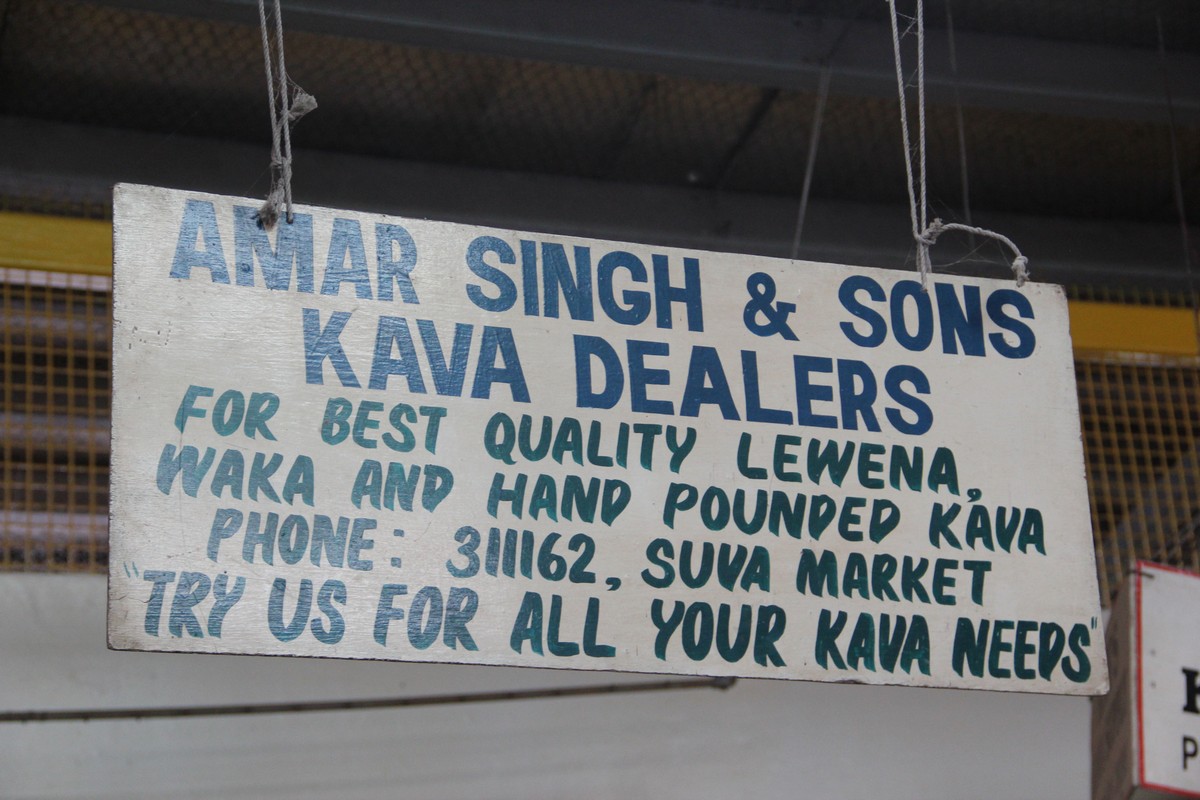 AMAR SINGH & SONS
KAVA DEALERS
FOR BEST QUALITY LEWENA,
WAKA AND HAND POUNDED KAVA
PHONE: 311162, SUVA MARKET
"TRY US FOR ALL YOUR KAVA NEEDS"